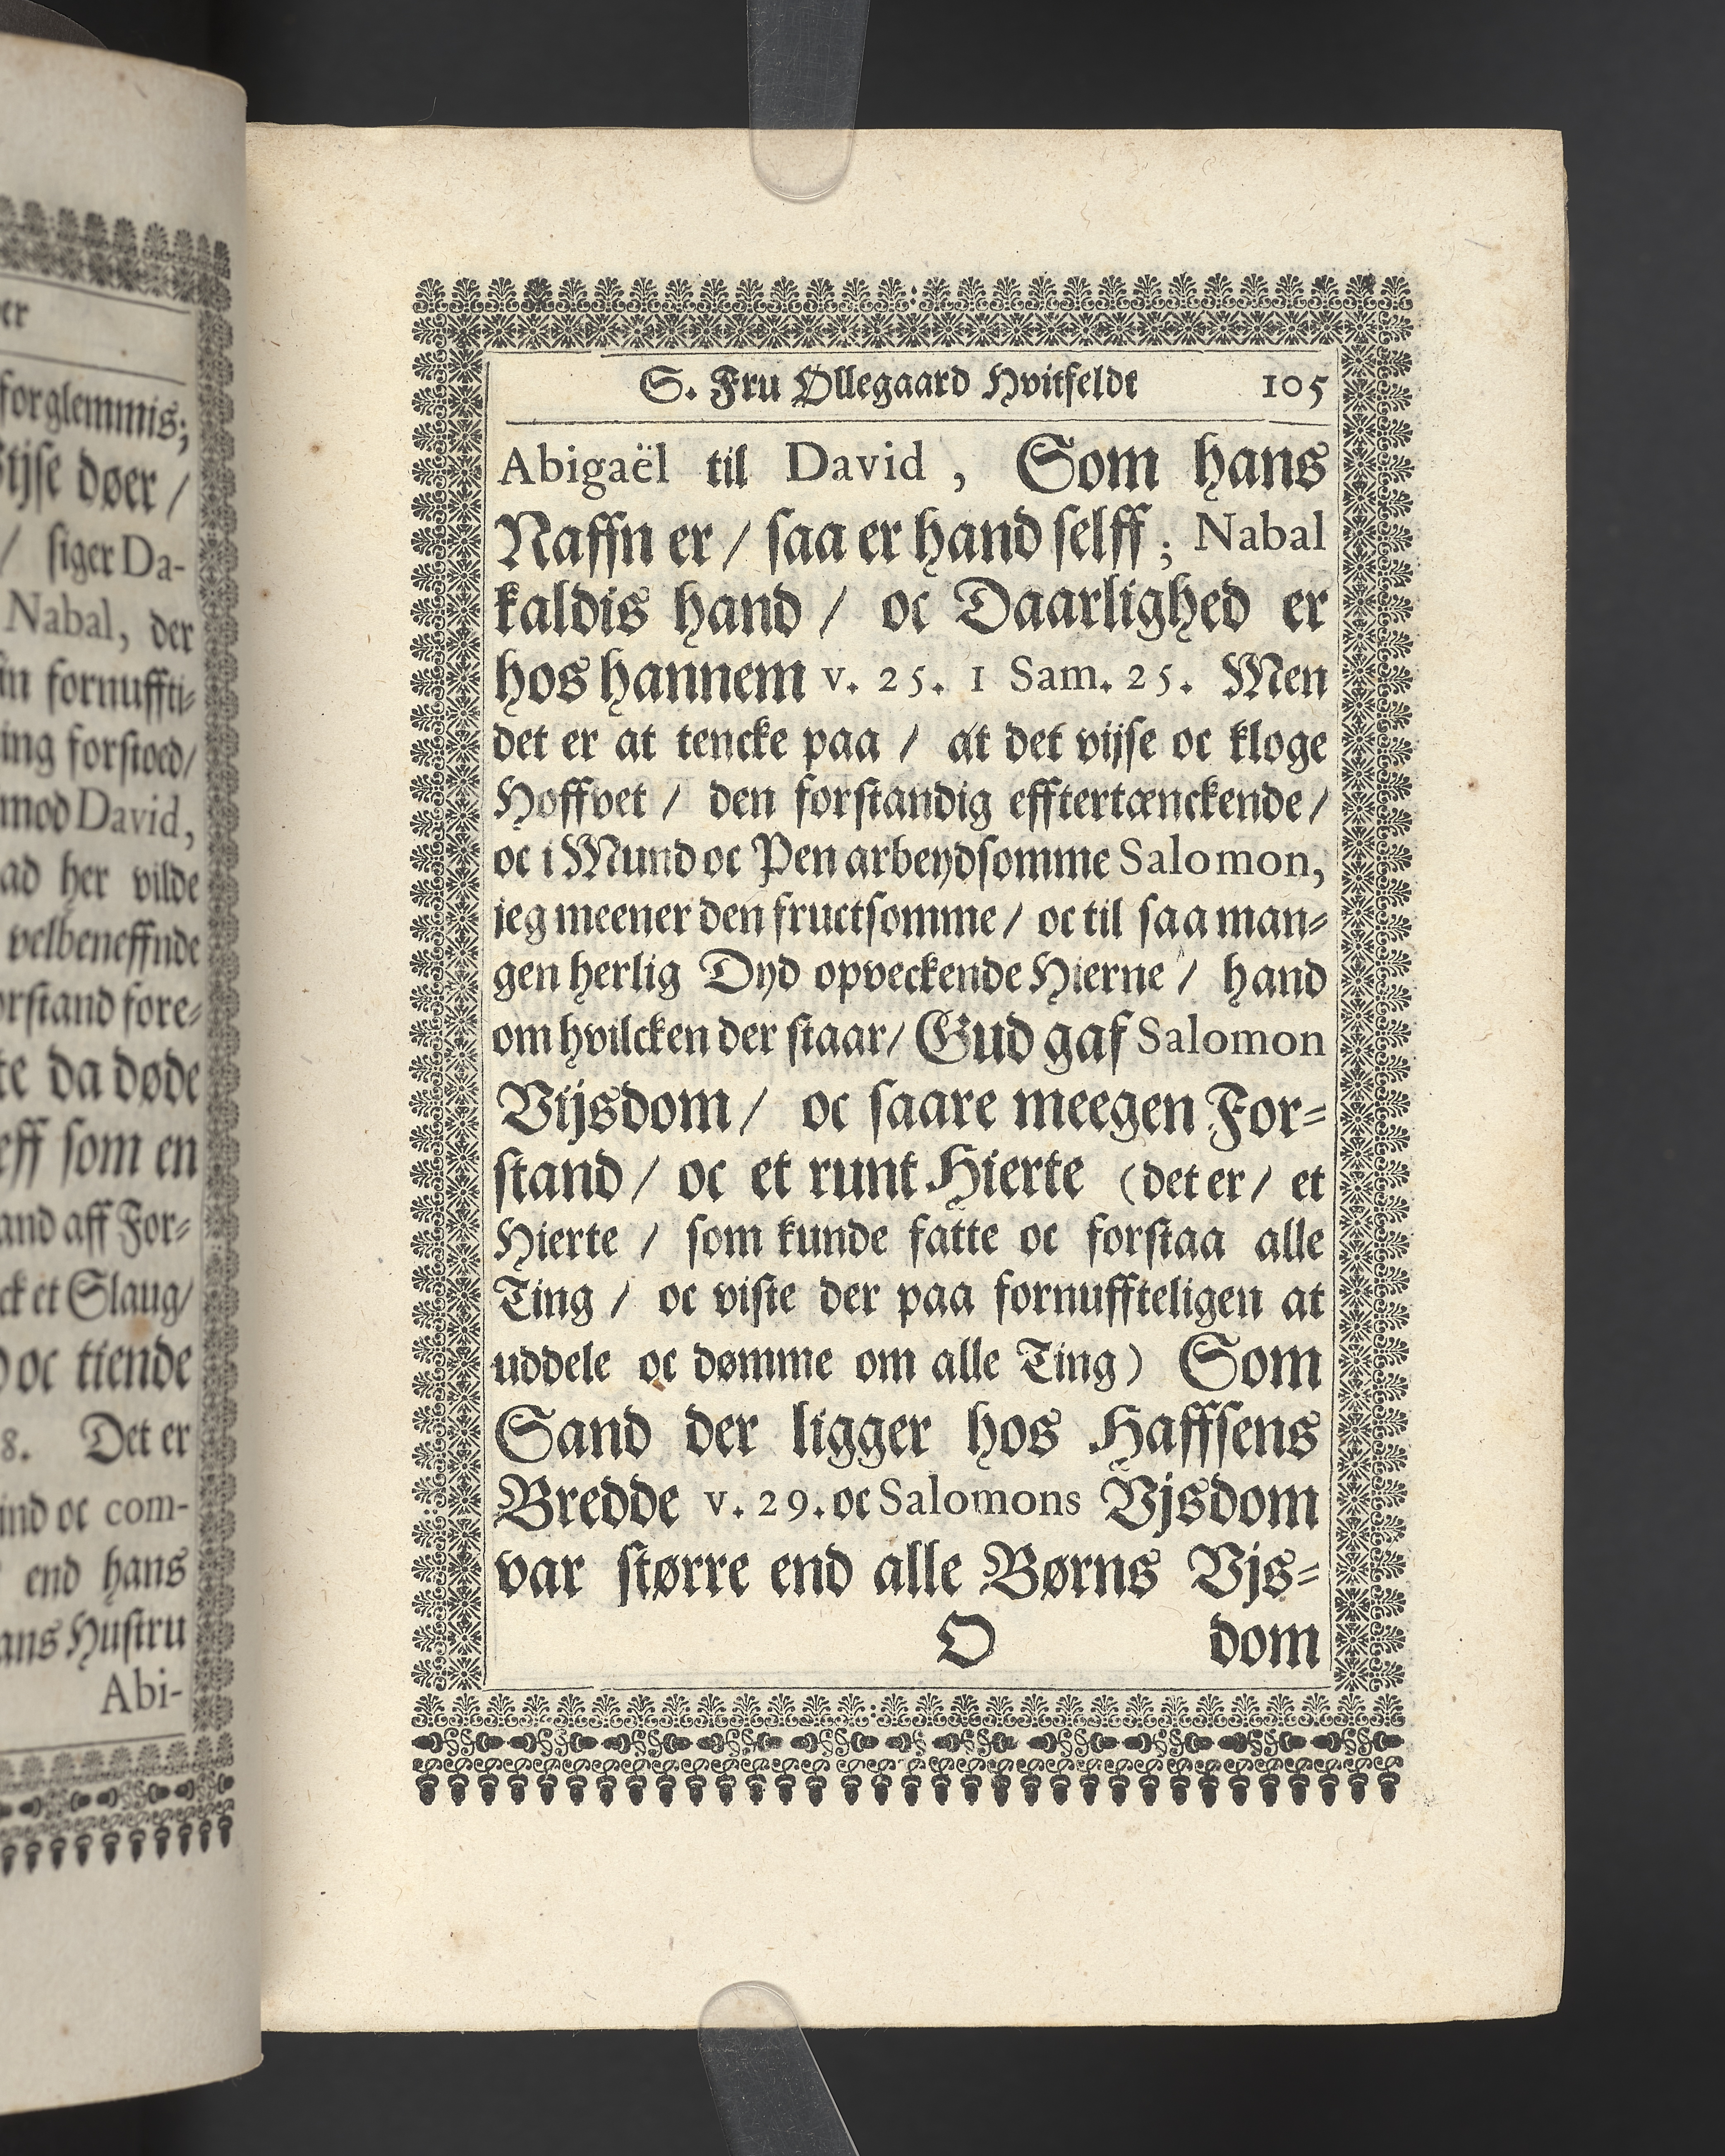 er
forglemmis;
døer /
/ siger Da-
Nabal, der
fornuffti-
ing forstoed/
mod David,
ad her vilde
velbeneffnde
fore-
da døde
som en
and aff For-
et Slaug/
oc tiende
8. Det er
ind oc com-
end hans
Hustru
Abi-
S. Fru Øllegaard Hvitfeldt 105
Abigaël til David , Som hans
Naffn er / saa er hand selff ; Nabal
kaldis hand / oc Daarlighed er
hos hannem v. 25. 1 Sam. 25. Men
det er at tencke paa / at det vijse oc kloge
Hoffvet / den forstandig efftertænckende/
oc i Mund oc Pen arbeydsomme Salomon,
jeg meener den fructsomme / oc til saa man-
gen herlig Dyd opveckende Hierne / hand
om hvilcken der staar/ Gud gaf Salomon
Vijsdom / oc saare meegen For-
stand / oc et runt Hierte (det er / et
Hierte / som kunde fatte oc forstaa alle
Ting / oc viste der paa fornuffteligen at
uddele oc dømme om alle Ting) Som
Sand der ligger hos Haffsens
Bredde v. 29. oc Salomons Vjsdom
var større end alle Børns Vjs-
O dom